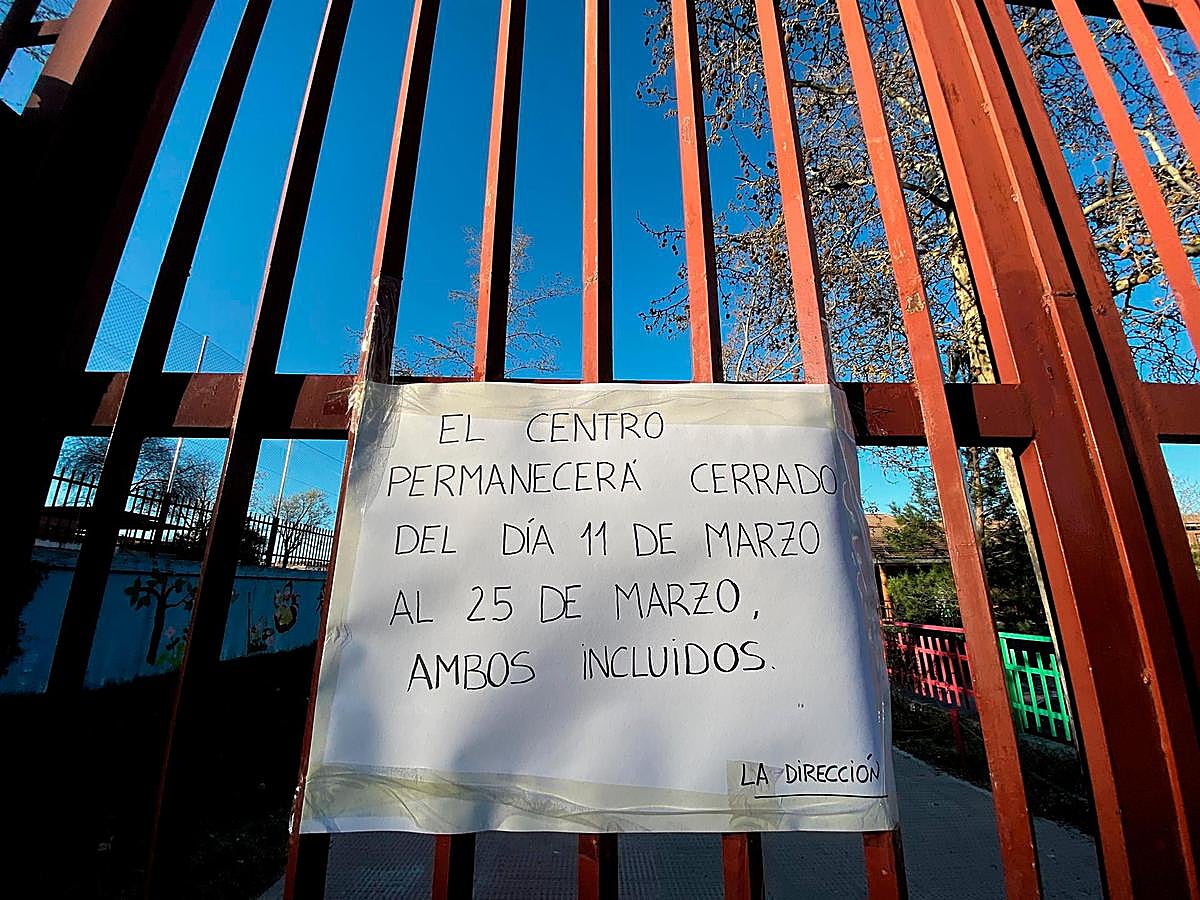 EL CENTRO
PERMANECERÁ CERRADO
DEL DÍA 11 DE MARZO
AL 25 DE MARZO,
AMBOS INCLUIDOS.
LA DIRECCIÓN